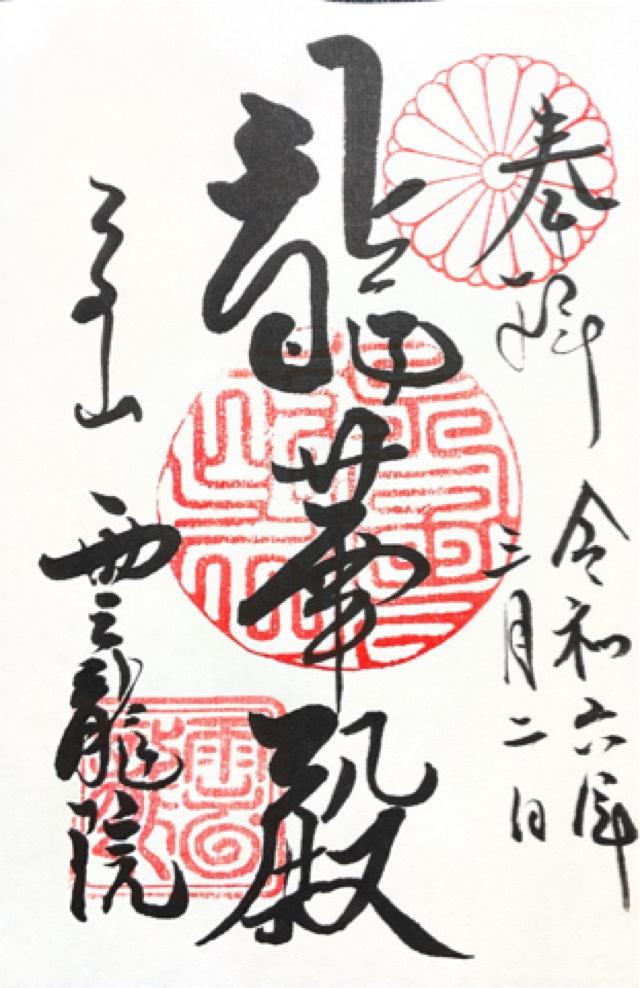 奉拝
令和六年
三月二日
龍華殿
泉山
雲龍院